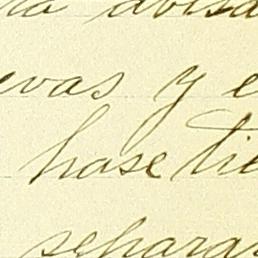 ra avisa
evas y e
hase tie
separar